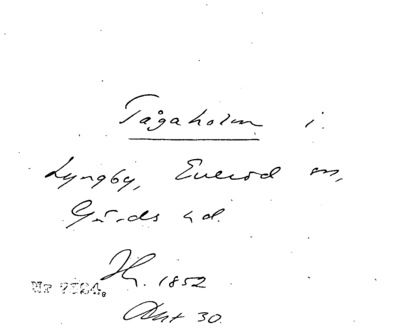 Tågaholm i.
Lyngby, Everöd sn,
Gärds hd.
1852
Akt 30.